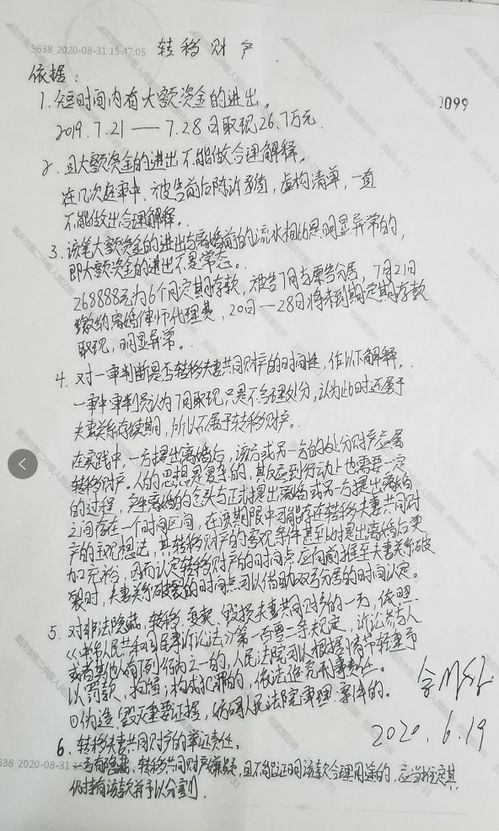 9638 2020-08-31 15:47:05 转移财产
依据：
0099
1. 短时间内有大额资金的进出。
2019.7.21——7.28日取现26.7万元.
2. 且大额资金的进出不能做合理解释。
在几次庭审中，被告前后陈述矛盾，虚构清单，一直
不能做出合理解释。
3. 该笔大额资金的进出与离婚前的流水相比是明显异常的，
即大额资金的进出不是常态。
268888元为6个月定期存款，被告7月与原告分居，7月21日
缴纳离婚律师代理费，20日—28日将未到期定期存款
取现，明显异常。
4. 对一审判断是否转移夫妻共同财产的时间性，作以下解释。
一审审判员认为7月取现只是不合理处分，认为此时还属于
夫妻关系存续期，所以不属于转移财产。
在实践中，一方提出离婚后，该方或另一方的处分财产应属
转移财产。人的思想是复杂的，其反应到行动上也需要一定
的过程，产生离婚的念头与正式提出离婚或另一方提出离婚
之间存在一个时间区间，在该期限中可能存在转移夫妻共同财
产的主观想法，其转移财产的客观条件甚至比提出离婚后更
加充裕，因而认定转移财产的时间点应向前推至夫妻关系破
裂时，夫妻关系破裂的时间点可以借助双方分居的时间认定。
5. 对非法隐藏、转移、变卖、毁损夫妻共同财产的一方，依照
《中华人民共和国民事诉讼法》第一百一十一条规定，诉讼参与人
或者其他人有下列行为之一的，人民法院可以根据情节轻重予
以罚款、拘留；构成犯罪的，依法追究刑事责任。
伪造、毁灭重要证据，妨碍人民法院审理案件的。
2020.6.19
6. 转移夫妻共同财产的举证责任。
一方有隐藏、转移共同财产嫌疑，且不能证明该款合理用途的，应当推定其
仍持有该款并予以分割。
638 2020-08-31